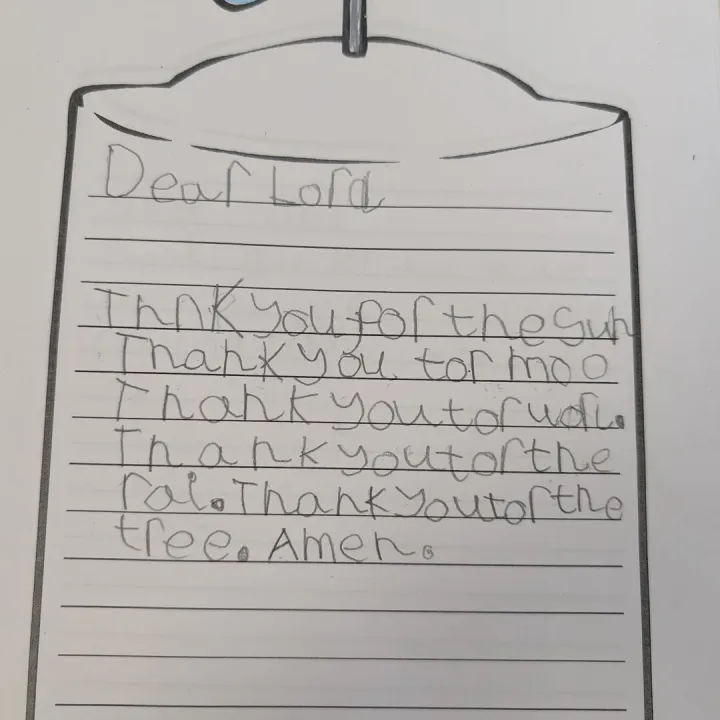 Dear Lord
Thnk you for the sun
Thank you tor moo
Thank you tor
Thank you tor the
rai. Thank you tor the
tree. Amen.